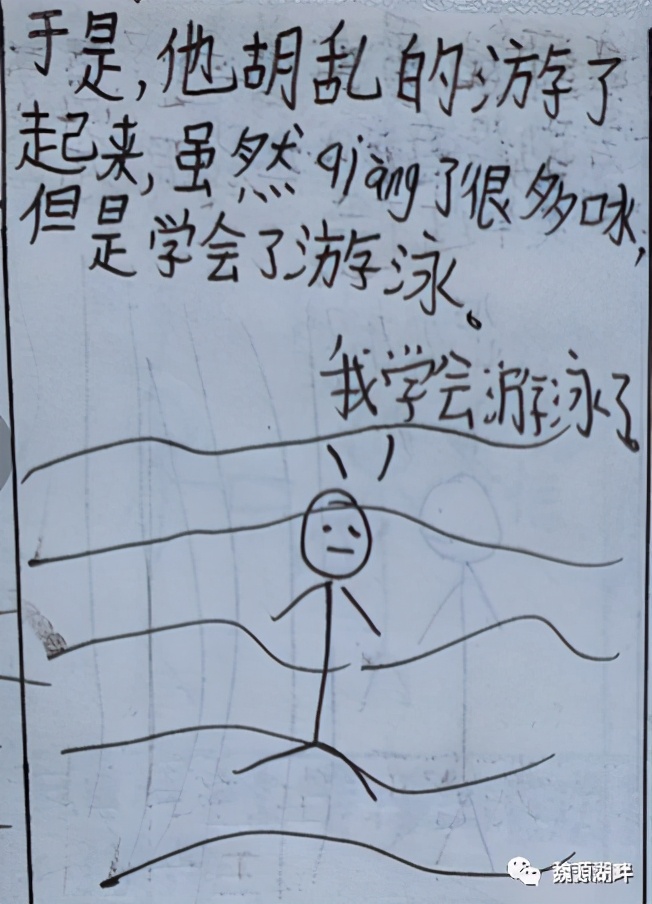 于是,他胡乱的游了
起来,虽然qiàng了很多口水,
但是学会了游泳。
我学会游泳了。